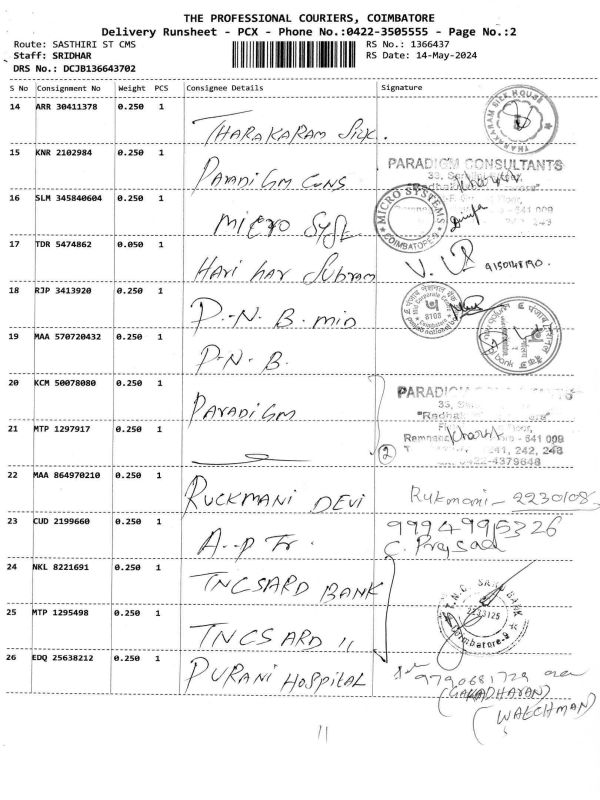 THE PROFESSIONAL COURIERS, COIMBATORE
Delivery Runsheet - PCX - Phone No.:0422-3505555 - Page No.:2
Route: SASTHIRI ST CMS RS No.: 1366437
Staff: SRIDHAR RS Date: 14-May-2024
DRS No.: DCJB136643702
S No Consignment No Weight PCS Consignee Details Signature
14 ARR 30411378 0.250 1 THARAKARAM SILK. THARAKARAM SILK HOUSE
15 KNR 2102984 0.250 1 Paradigm Cons PARADIGM CONSULTANTS
16 SLM 345840604 0.250 1 MICRO SYS MICRO SYSTEMS COIMBATORE-9
17 TDR 5474862 0.050 1 Hari har Subram 9150148190.
18 RJP 3413920 0.250 1 P.N.B. mid 8108
19 MAA 570720432 0.250 1 P.N.B.
20 KCM 50078080 0.250 1 Paradigm PARADIGM
21 MTP 1297917 0.250 1 2 641 009
241, 242, 243
0422-4379848
22 MAA 864970210 0.250 1 RUCKMANI DEVI Rukmani - 2230108
23 CUD 2199660 0.250 1 9994995326
C. Prasad
24 NKL 8221691 0.250 1 TNCSARD BANK T.N.C. SARD BANK
25 MTP 1295498 0.250 1 TNCSARD 11 Coimbatore-9
26 EDQ 25638212 0.250 1 PURANI HOSPITAL 9790681729
(WATCHMAN)
11